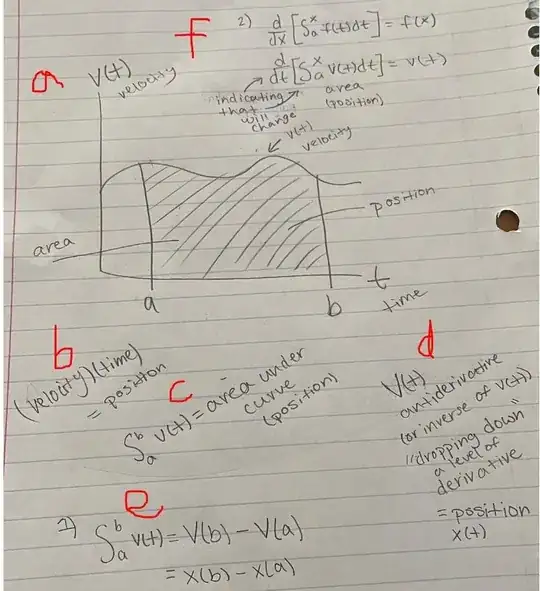 f
2) d/dx [∫ₐˣ f(t)dt] = f(x)
d/dt [∫ₐˣ v(t)dt] = v(t)
indicating
that
will
change
area
(position)
a
v(t)
velocity
v(t)
velocity
position
area
a
b
t
time
b
(velocity)(time)
= position
c
∫ₐᵇ v(t) = area under
curve
(position)
d
V(t)
antiderivative
(or inverse of v(t))
"dropping down"
a level of
derivative
= position
x(t)
e
1) ∫ₐᵇ v(t) = V(b) - V(a)
= x(b) - x(a)